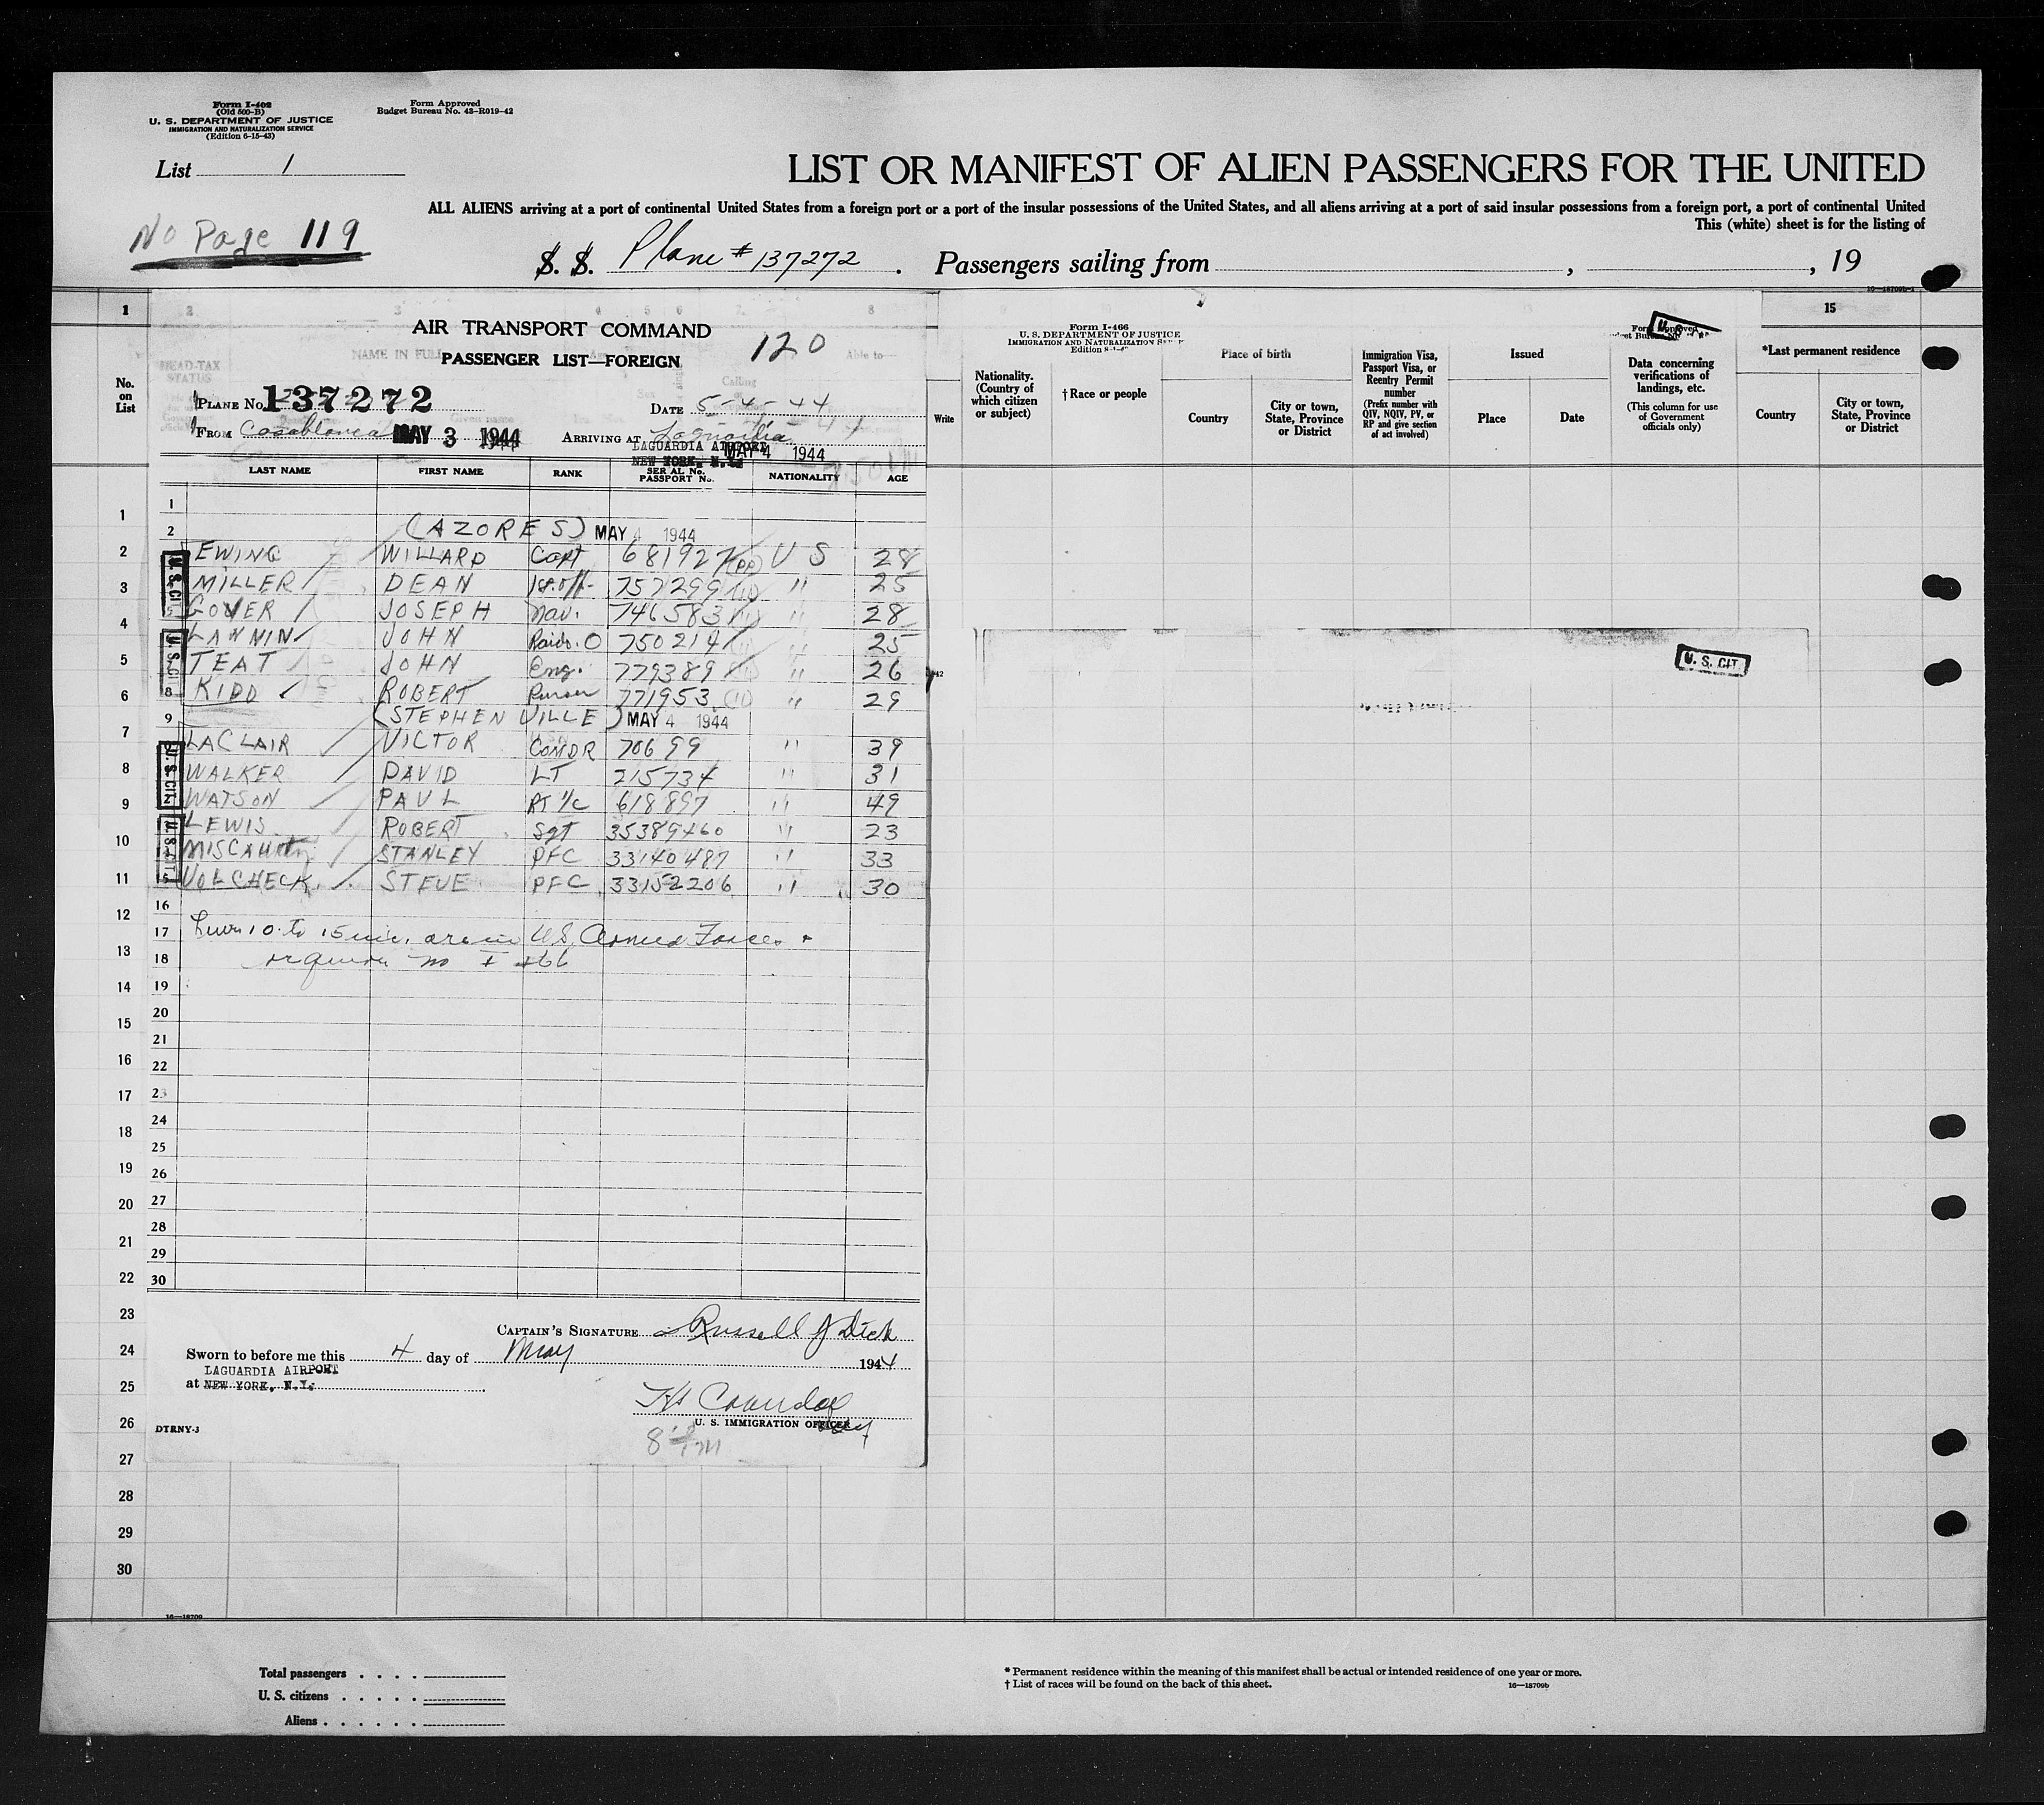 Form I-402
(Old 500-B)
U. S. DEPARTMENT OF JUSTICE
IMMIGRATION AND NATURALIZATION SERVICE
(Edition 6-15-43)
Form Approved
Budget Bureau No. 43-R019-42
List 1
LIST OR MANIFEST OF ALIEN PASSENGERS FOR THE UNITED
ALL ALIENS arriving at a port of continental United States from a foreign port or a port of the insular possessions of the United States, and all aliens arriving at a port of said insular possessions from a foreign port, a port of continental United
This (white) sheet is for the listing of
No Page 119
S. S. Plane # 137272. Passengers sailing from , , 19
16—18709b-1
1
No. on List
AIR TRANSPORT COMMAND
PASSENGER LIST—FOREIGN
120
PLANE No. 137272
DATE 5-4-44
FROM Casablanca MAY 3 1944
ARRIVING AT Laguardia
LAGUARDIA AIRPORT MAY 4 1944
NEW YORK, N.Y.
LAST NAME FIRST NAME RANK SERIAL No. PASSPORT No. NATIONALITY AGE
1
2 (AZORES) MAY 4 1944
EWING WILLARD Capt 681927 (PP) U S 28
MILLER DEAN 1st.off. 757299 " 25
GOVER JOSEPH Nav. 746583 " 28
LANNIN JOHN Raido. O 750214 " 25
TEAT JOHN Eng. 779389 " 26
8 KIDD ROBERT Purser 771953 " 29
9 (STEPHENVILLE) MAY 4 1944
LACLAIR VICTOR COMDR 70699 " 39
WALKER DAVID LT 215734 " 31
WATSON PAUL RT 1/c 618897 " 49
LEWIS ROBERT Sgt 35389460 " 23
STANLEY PFC 33140487 " 33
15 VOLCHECK STEVE PFC 33152206 " 30
16
17 Lines 10 to 15 inc. are in U.S. Armed Forces &
18 require no I 466
19
20
21
22
23
24
25
26
27
28
29
30
U. S. CIT.
U. S. CIT.
U. S. CIT.
U. S. CIT.
CAPTAIN'S SIGNATURE Russell J Dick
Sworn to before me this 4 day of May 1944
LAGUARDIA AIRPORT
at NEW YORK, N.Y.
U. S. IMMIGRATION OFFICER
DTRNY-3
1
2
3
4
5
6
7
8
9
10
11
12
13
14
15
16
17
18
19
20
21
22
23
24
25
26
27
28
29
30
Write
Form I-466
U. S. DEPARTMENT OF JUSTICE
IMMIGRATION AND NATURALIZATION
Edition
Nationality. (Country of which citizen or subject)
† Race or people
Place of birth
Country
City or town, State, Province or District
Immigration Visa, Passport Visa, or Reentry Permit number
(Prefix number with QIV, NQIV, PV, or RP and give section of act involved)
Issued
Place
Date
Data concerning verifications of landings, etc.
(This column for use of Government officials only)
15
*Last permanent residence
Country
City or town, State, Province or District
U. S. CIT.
16—18709
Total passengers
U. S. citizens
Aliens
* Permanent residence within the meaning of this manifest shall be actual or intended residence of one year or more.
† List of races will be found on the back of this sheet.
16—18709b